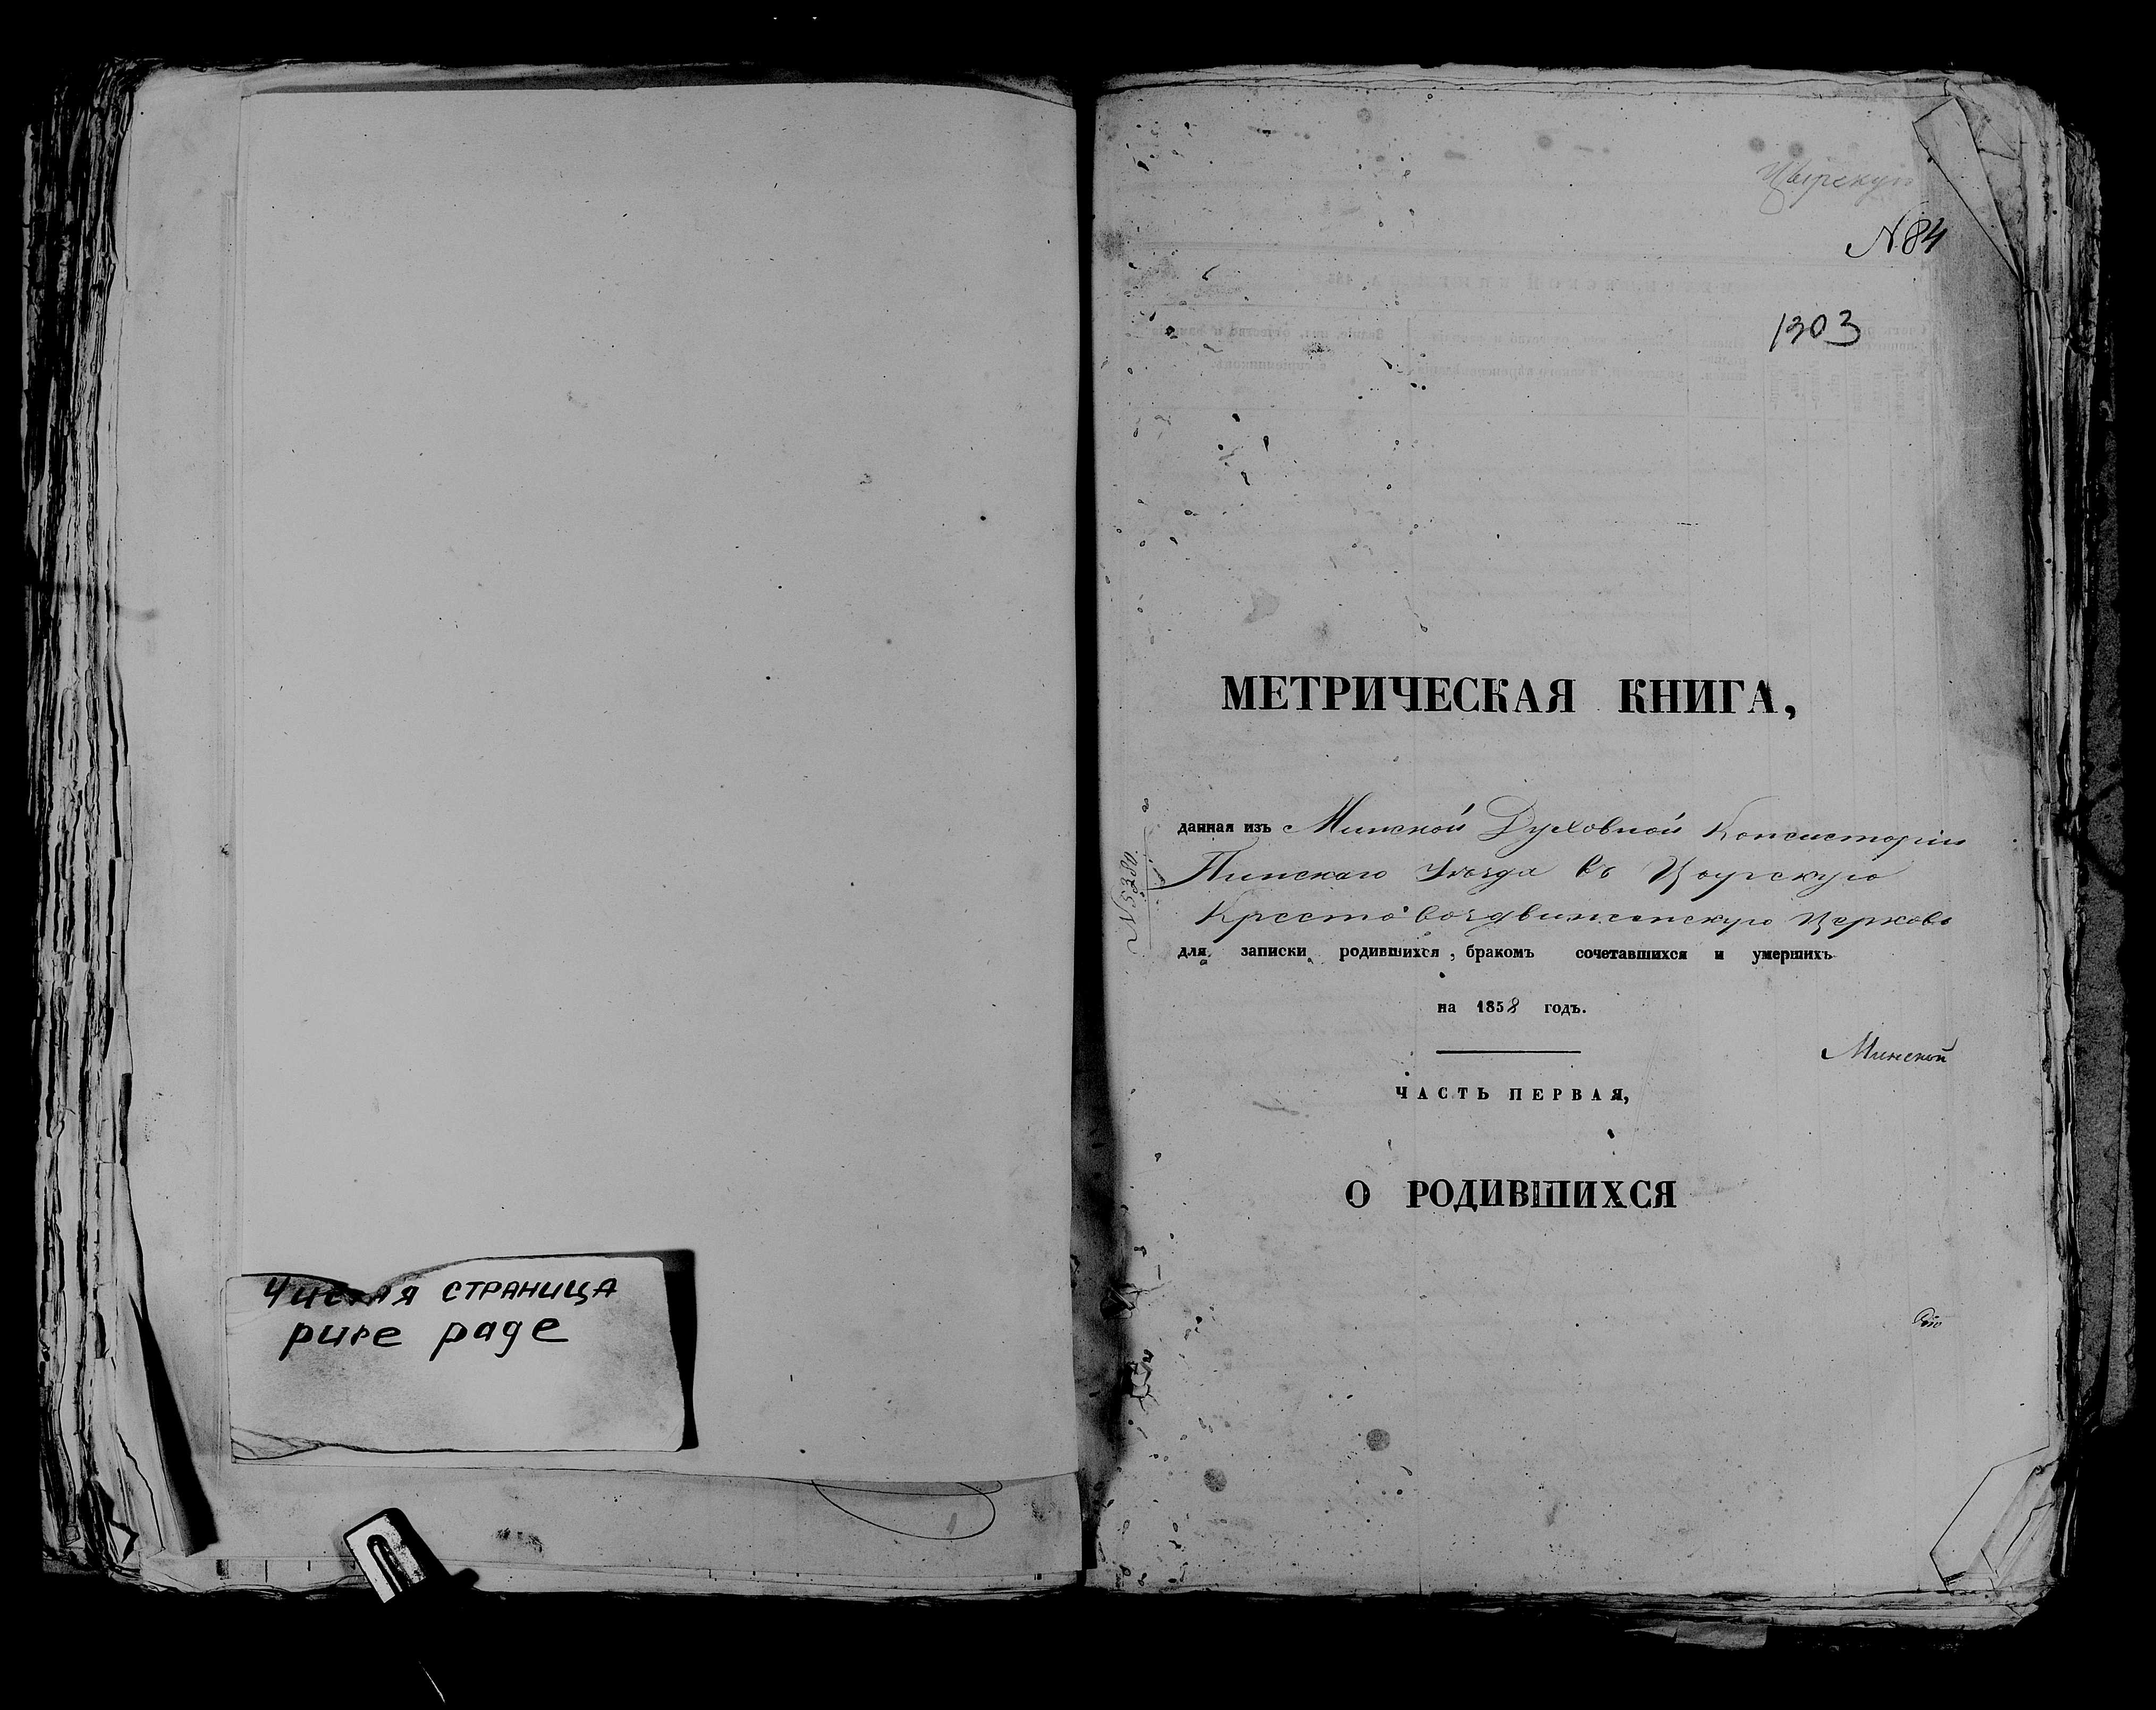 Чистая страница
pure page
N 84
1303
МЕТРИЧЕСКАЯ КНИГА,
данная изъ Минской Духовной Консисторіи
Пинскаго Уѣзда въ
Кресто Воздвиженскую Церковь
N 5280.
для записки родившихся, бракомъ сочетавшихся и умершихъ
на 1858 годъ.
Минской
ЧАСТЬ ПЕРВАЯ,
О РОДИВШИХСЯ